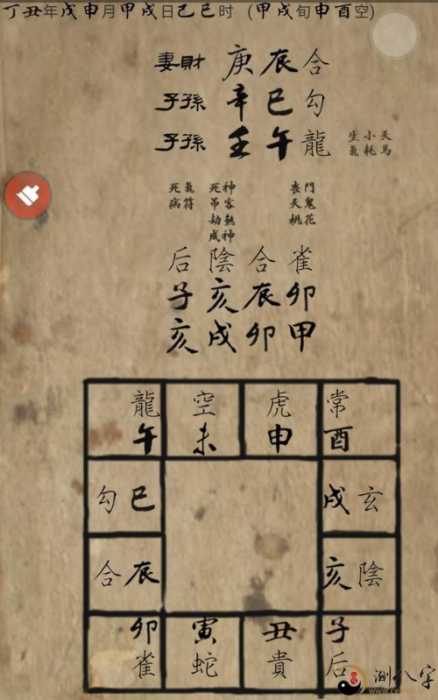 丁丑年戊申月甲戌日己巳时 (甲戌旬申酉空)
妻財 庚辰合
子孫 辛巳勾
子孫 壬午龍 生氣 小耗 天馬
死病 氣符 死弔劫成 神客煞神 喪天 門鬼花桃
后陰合雀
子亥辰卯
亥戌卯甲
龍空虎常
午未申酉
勾巳 戌玄
合辰 亥陰
卯寅丑子
雀蛇貴后
测八字